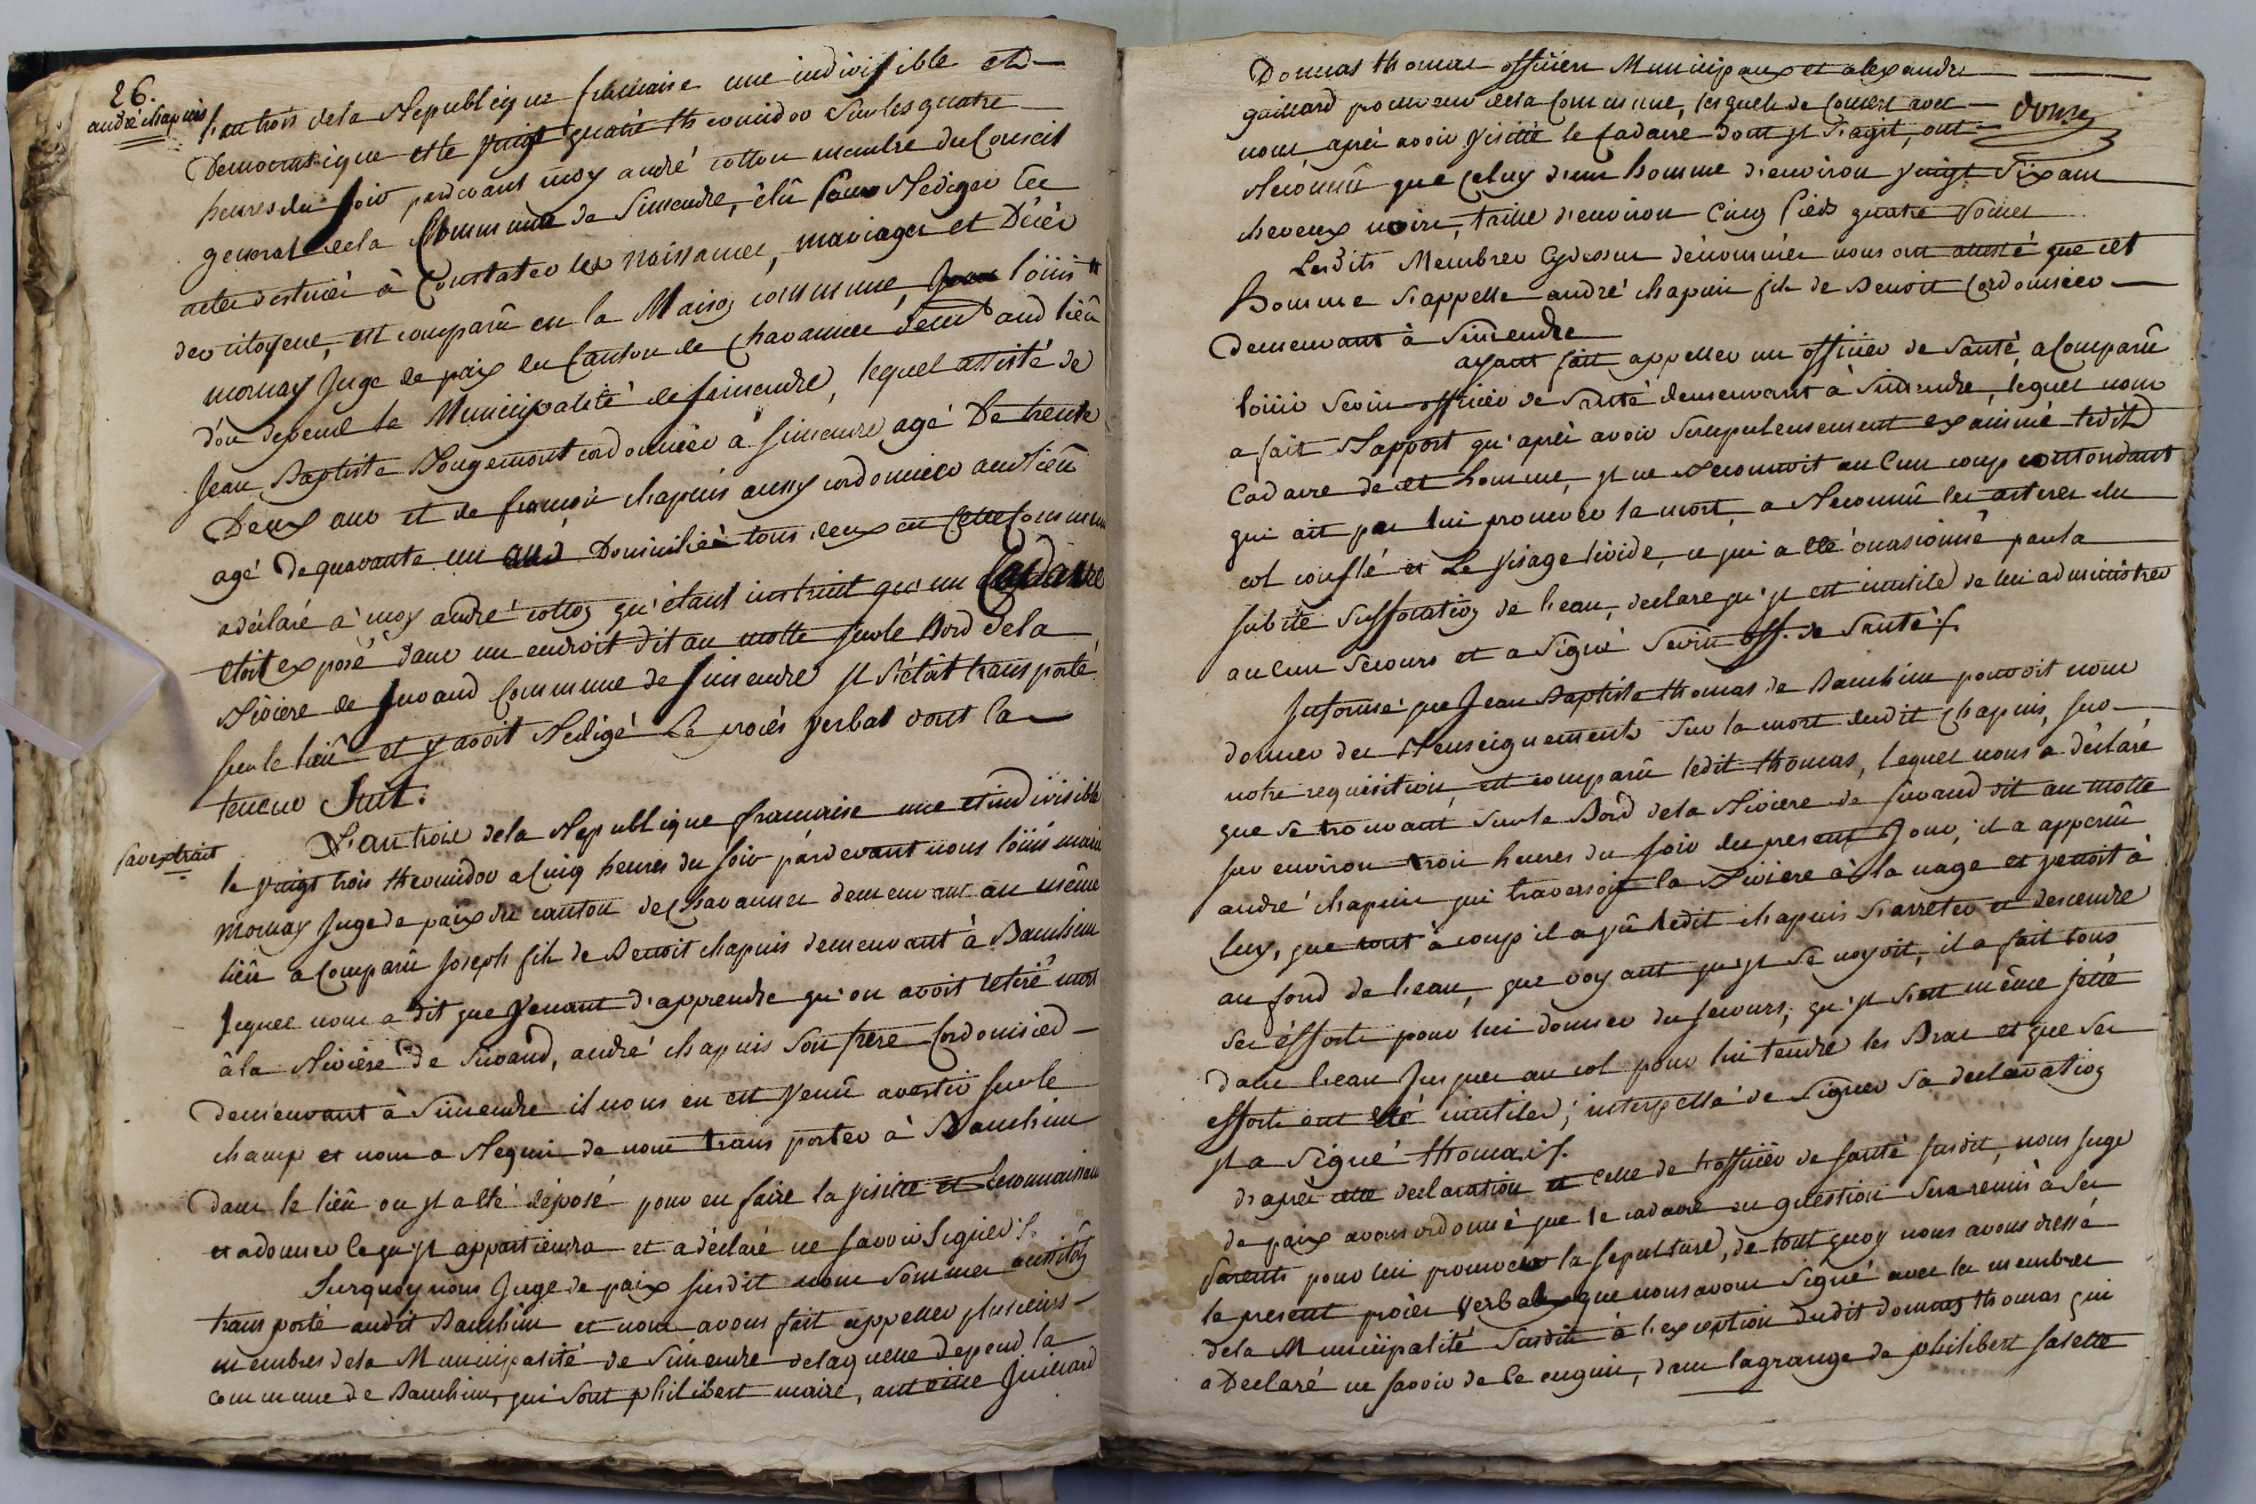 26.
andré chapuis
L'an trois de la Republique francaise une indivisible et
Democratique et le vingt quatre thermidor sur les quatre
heures du soir pardevant moy andré cotton membre du Conseil
general de la Commune de Simendre, élû pour Rediger les
actes destinés à Constater les naissances, mariages et Décès
des citoyens, est comparû en la Maison commune, louis
mornay Juge de paix du Canton de Chavannes demt audt liêu
d'ou depend la Municipalité de simendre, lequel assisté de
Jean Baptiste Rougemont cordonnier à simendre agé De trente
Deux ans et de françois chapuis aussy cordonnier audt liêu
agé de quarante un ans Domiciliés tous deux en cette Commune
a déclaré à moy andré cotton qu'étant instruit qu'un Cadavre
etoit exposé dans un endroit dit au motte sur le Bord de la
Riviere de suvand Commune de simendre Jl s'étoit transporté
sur le liêu et y avoit Redigé Le procès verbal dont la
teneur Suit.
par extrait
L'an trois de la Republique francaise une et indivisible
le vingt trois thermidor a Cinq heures du soir pardevant nous loüis marie
mornay Juge de paix du canton de Chavannes demeurant au même
liêu a Comparû Joseph fils de Benoit chapuis demeurant à Bauchin
lequel nous a dit que venant d'apprendre qu'on avoit retiré mort
à la Riviere de Suvand, andré chapuis son frere Cordonnier
demeurant à Simendre il nous en est venû avertir sur le
champ et nous a Requis de nous transporter à Bauchin
dans le liêu ou Jl a été déposé pour en faire la visitte et Reconnaissance
et adonner ce qu'Jl appartiendra et a déclaré ne savoir signer /.
Surquoy nous Juge de paix susdit nous sommes aussitôt
transporté audit Bauchin et nous avons fait appeller plusieurs
membres de la Municipalité de Simendre de laquelle depend la
commune de Bauchin, qui sont philibert maire, antoine Juillard
Donnas thomas officiers Municipaux et alexandre
gaillard procureur de la Commune, lesquels de Concert avec
nous, après avoir visitté le Cadavre dont Jl s'agit, ont
Reconnû que Celuy d'un homme d'environ vingt six ans
cheveux noirs, taille d'environ Cinq pieds quatre pouces
Lesdits Membres Cydessus dénommés nous ont attesté que cet
homme s'appelle andré chapuis fils de Benoit Cordonnier
demeurant à Simendre
ayant fait appeller un officier de Santé, a Comparû
loüis Sevin officier de Santé demeurant à Simendre, lequel nous
a fait Rapport qu'après avoir scrupuleusement examiné ledit
Cadavre de cet homme, Jl ne Reconnoit aucun coup contondant
qui ait pas lui procurer la mort, a Reconnû les arteres du
col gonflé et Le visage livide, ce qui a été occasionné par la
subite suffocation de l'eau, declare qu'Jl est inutile de lui administrer
aucun secours et a signé Sevin off. de Santé /.
Informé que Jean Baptiste thomas de Bauchin pouvoit nous
donner des Renseignements sur la mort dudit chapuis, sur
notre requisition, est comparû ledit thomas, lequel nous a déclaré
que se trouvant sur le Bord de la Riviere de suvand dit au motte
sur environ trois heures du soir du present Jour, il a apperçû
andré chapuis qui traversoit la Riviere à la nage et venoit à
luy, que tout à coup il a vû ledit chapuis s'arreter et descendre
au fond de l'eau, que voyant qu'Jl se noyoit, il a fait tous
ses éfforts pour lui donner du secours, qu'Jl s'est même jetté
dans l'eau Jusques au col pour lui tendre les Bras et que ses
efforts ont été inutiles; interpellé de signer sa declaration
Jl a signé thomas /.
d'après cette declaration et celle de l'officier de santé susdit, nous Juge
de paix avons ordonné que le cadavre en question sera remis à ses
Parents pour lui procurer la sepulture, de tout quoy nous avons dressé
le present procès verbal que nous avons signé avec les membres
de la Municipalité susdit à l'exception dudit donnas thomas qui
a Declaré ne savoir de ce enquis, dans la grange de philibert salette